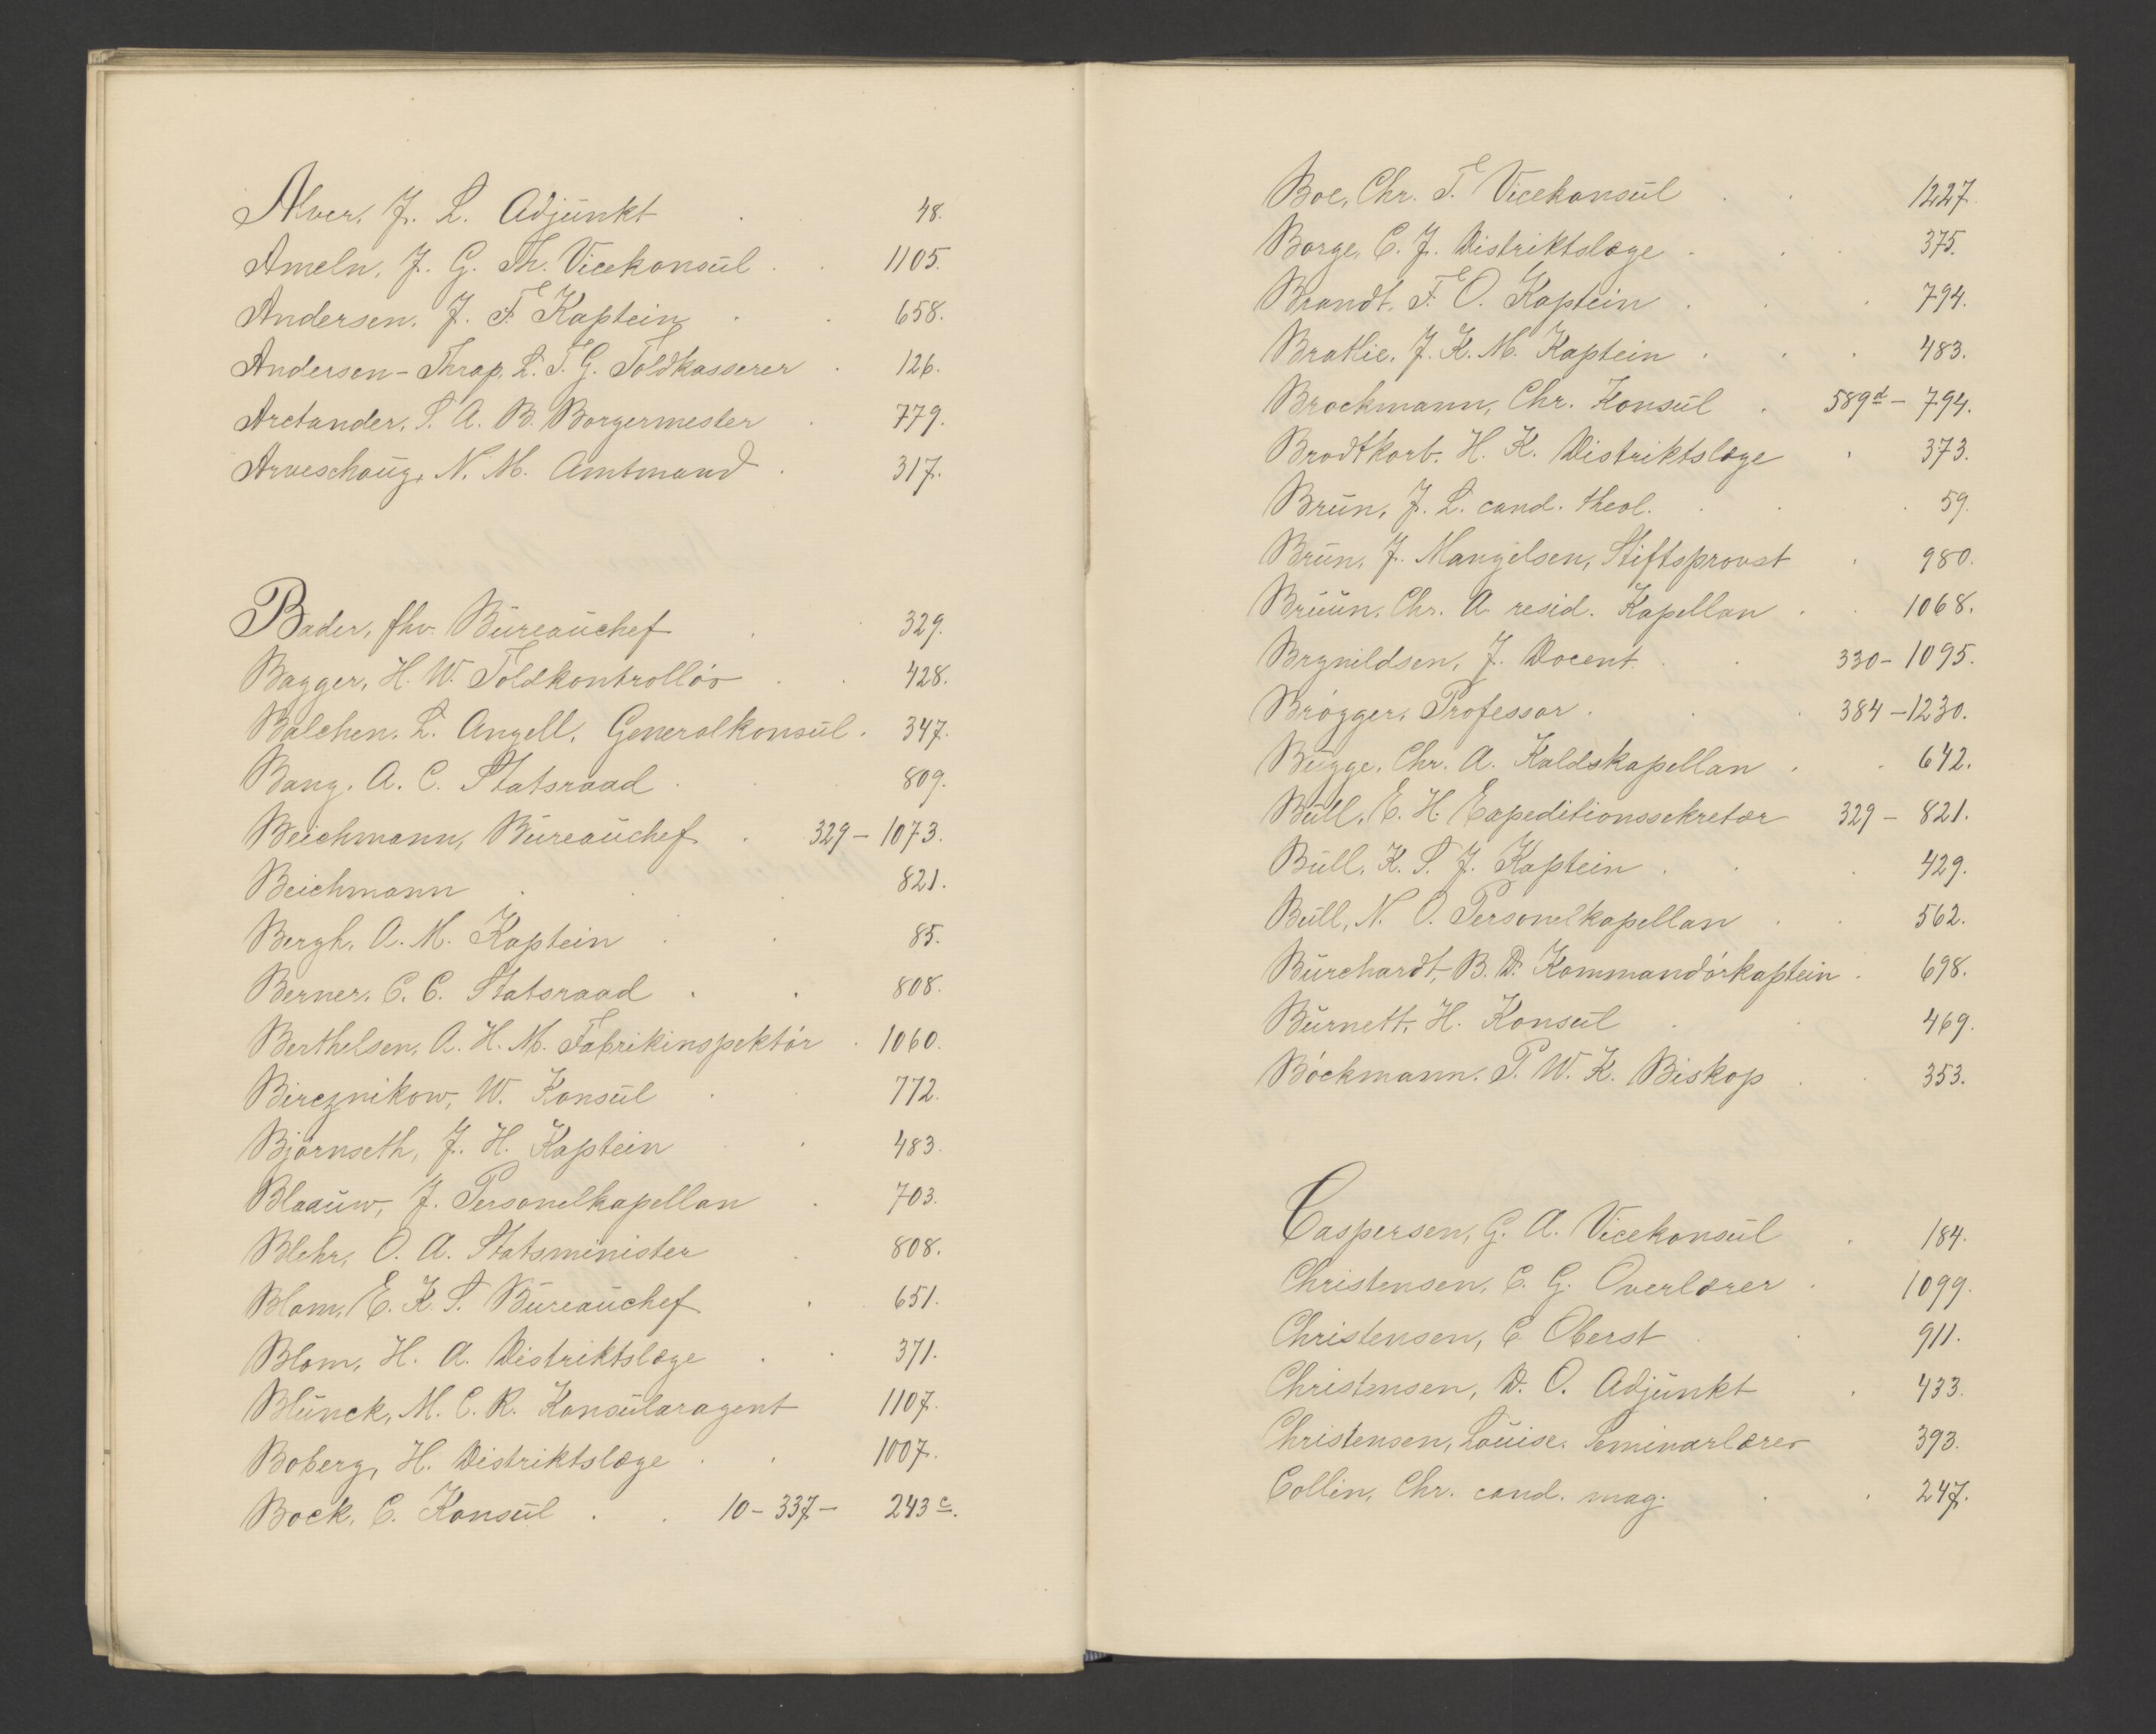 Alver, J. L. Adjunkt . . 48.
Ameln, J. G. Th. Vicekonsul . . 1105.
Andersen, J. F. Kaptein . . 658.
Andersen-Thrap, L. T. G. Toldkasserer . 126.
Arctander, S. A. B. Borgermester . 779.
Arveschoug, N. M. Amtmand . 317.
Bader, fhv. Bureauchef . . 329.
Bagger, H. W. Toldkontrollør . . 428.
Balchen, L. Angell, Generalkonsul . 347.
Bang, A. C. Statsraad . . 809.
Beichmann, Bureauchef . 329 - 1073.
Beichmann . . . 821.
Bergh, A. M. Kaptein . . 85.
Berner, C. C. Statsraad . . 808.
Berthelsen, A. H. M. Fabrikinspektør . 1060.
Bireznikow, W. Konsul . . 772.
Bjørnseth, J. H. Kaptein . . 483.
Blaauw, J. Personelkapellan . 703.
Blehr, O. A. Statsminister . 808.
Blom, E. K. S. Bureauchef . . 651.
Blom, H. A. Distriktslæge . . 371.
Blunck, M. C. R. Konsularagent 1107.
Boberg, H. Distriktslæge . . 1007.
Bock, C. Konsul . . 10 - 337 - 243 c.
Boe, Chr. F. Vicekonsul . . 1227.
Borge, C. J. Distriktslæge . . . 375.
Brandt, F. O. Kaptein . . . 794.
Bratlie, J. K. M. Kaptein . . . 483.
Brockmann, Chr. Konsul . 589 d - 794.
Brodtkorb, H. K. Distriktslæge . 373.
Brun, J. L. cand. theol. . . . 59.
Brun, J. Mangelsen, Stiftsprovst . 980.
Bruun, Chr. A. resid. Kapellan . . 1068.
Brynildsen, J. Docent . . 330 - 1095.
Brøgger, Professor . . . 384 - 1230.
Bugge, Chr. A. Kaldskapellan . . 642.
Bull, E. H. Expeditionssekretær 329 - 821.
Bull, K. S. J. Kaptein . . . 429.
Bull, N. O. Personelkapellan . . 562.
Burchardt, B. D. Kommandørkaptein . 698.
Burnett, H. Konsul . . 469.
Bøckmann, P. W. K. Biskop . . 353.
Caspersen, G. A. Vicekonsul . 184.
Christensen, C. G. Overlærer . 1099.
Christensen, C. Oberst . . 911.
Christensen, D. O. Adjunkt . 433.
Christensen, Louise, Seminarlærer 393.
Collin, Chr. cand. mag. . . 247.